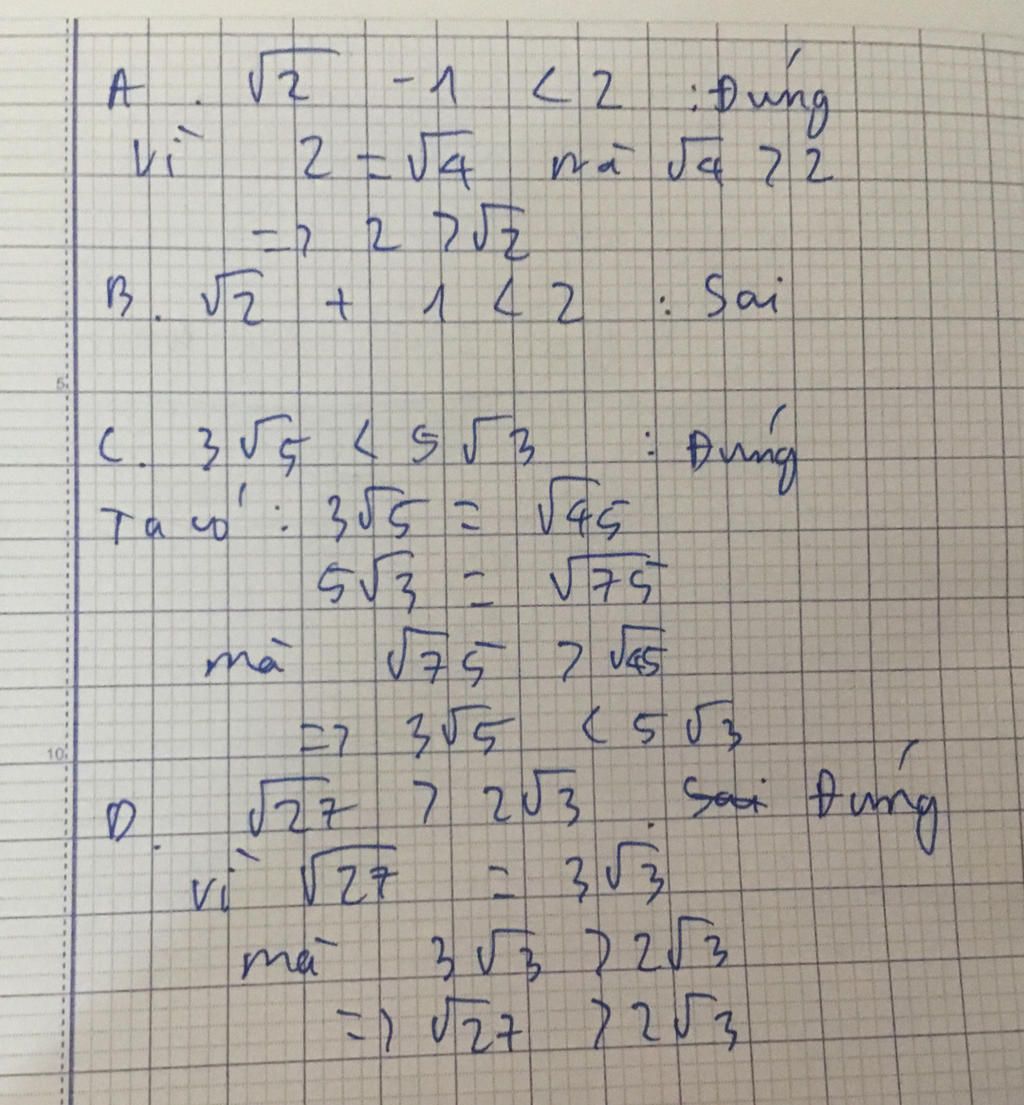 A. √2 - 1 < 2 : Đúng
Vì 2 = √4 mà √4 > 2
=> 2 > √2
B. √2 + 1 < 2 : Sai
5
C. 3√5 < 5√3 : Đúng
Ta có : 3√5 = √45
5√3 = √75
mà √75 > √45
=> 3√5 < 5√3
10
D. √27 > 2√3 : Sai Đúng
vì √27 = 3√3
mà 3√3 > 2√3
=> √27 > 2√3